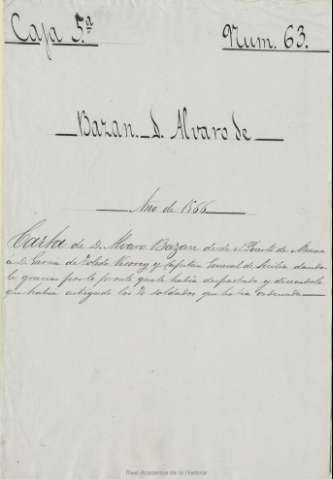 Caja 5.ª
Num. 63.
Bazan. D. Alvaro de
Año de 1566
Carta de D. Alvaro Bazan desde el Puerto de
a D. Garcia de Toledo Virrey y Capitan General de Sicilia dando
le gracias por lo pronto que le habia despachado y diciendole
que habia entregado los soldados que habia ordenado
Real Academia de la Historia